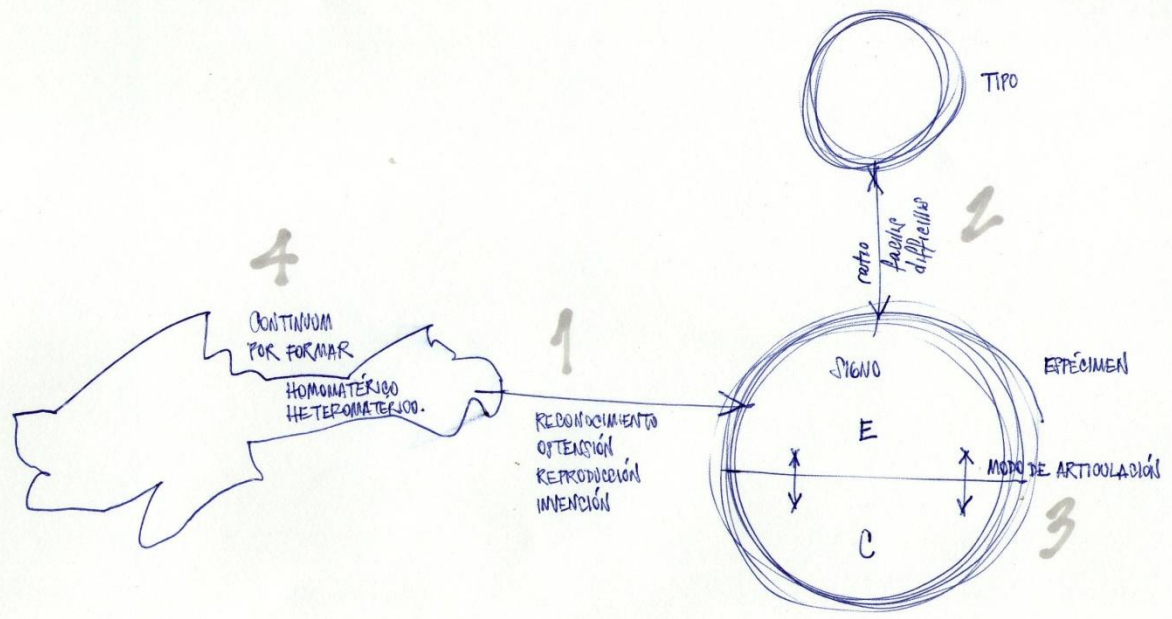 TIPO
2
ratio
facilis
difficilis
4
CONTINUUM
POR FORMAR
HOMOMATÉRICO
HETEROMATERICO.
1
RECONOCIMIENTO
OSTENSIÓN
REPRODUCCIÓN
INVENCIÓN
SIGNO
ESPÉCIMEN
E
MODO DE ARTICULACIÓN
C
3